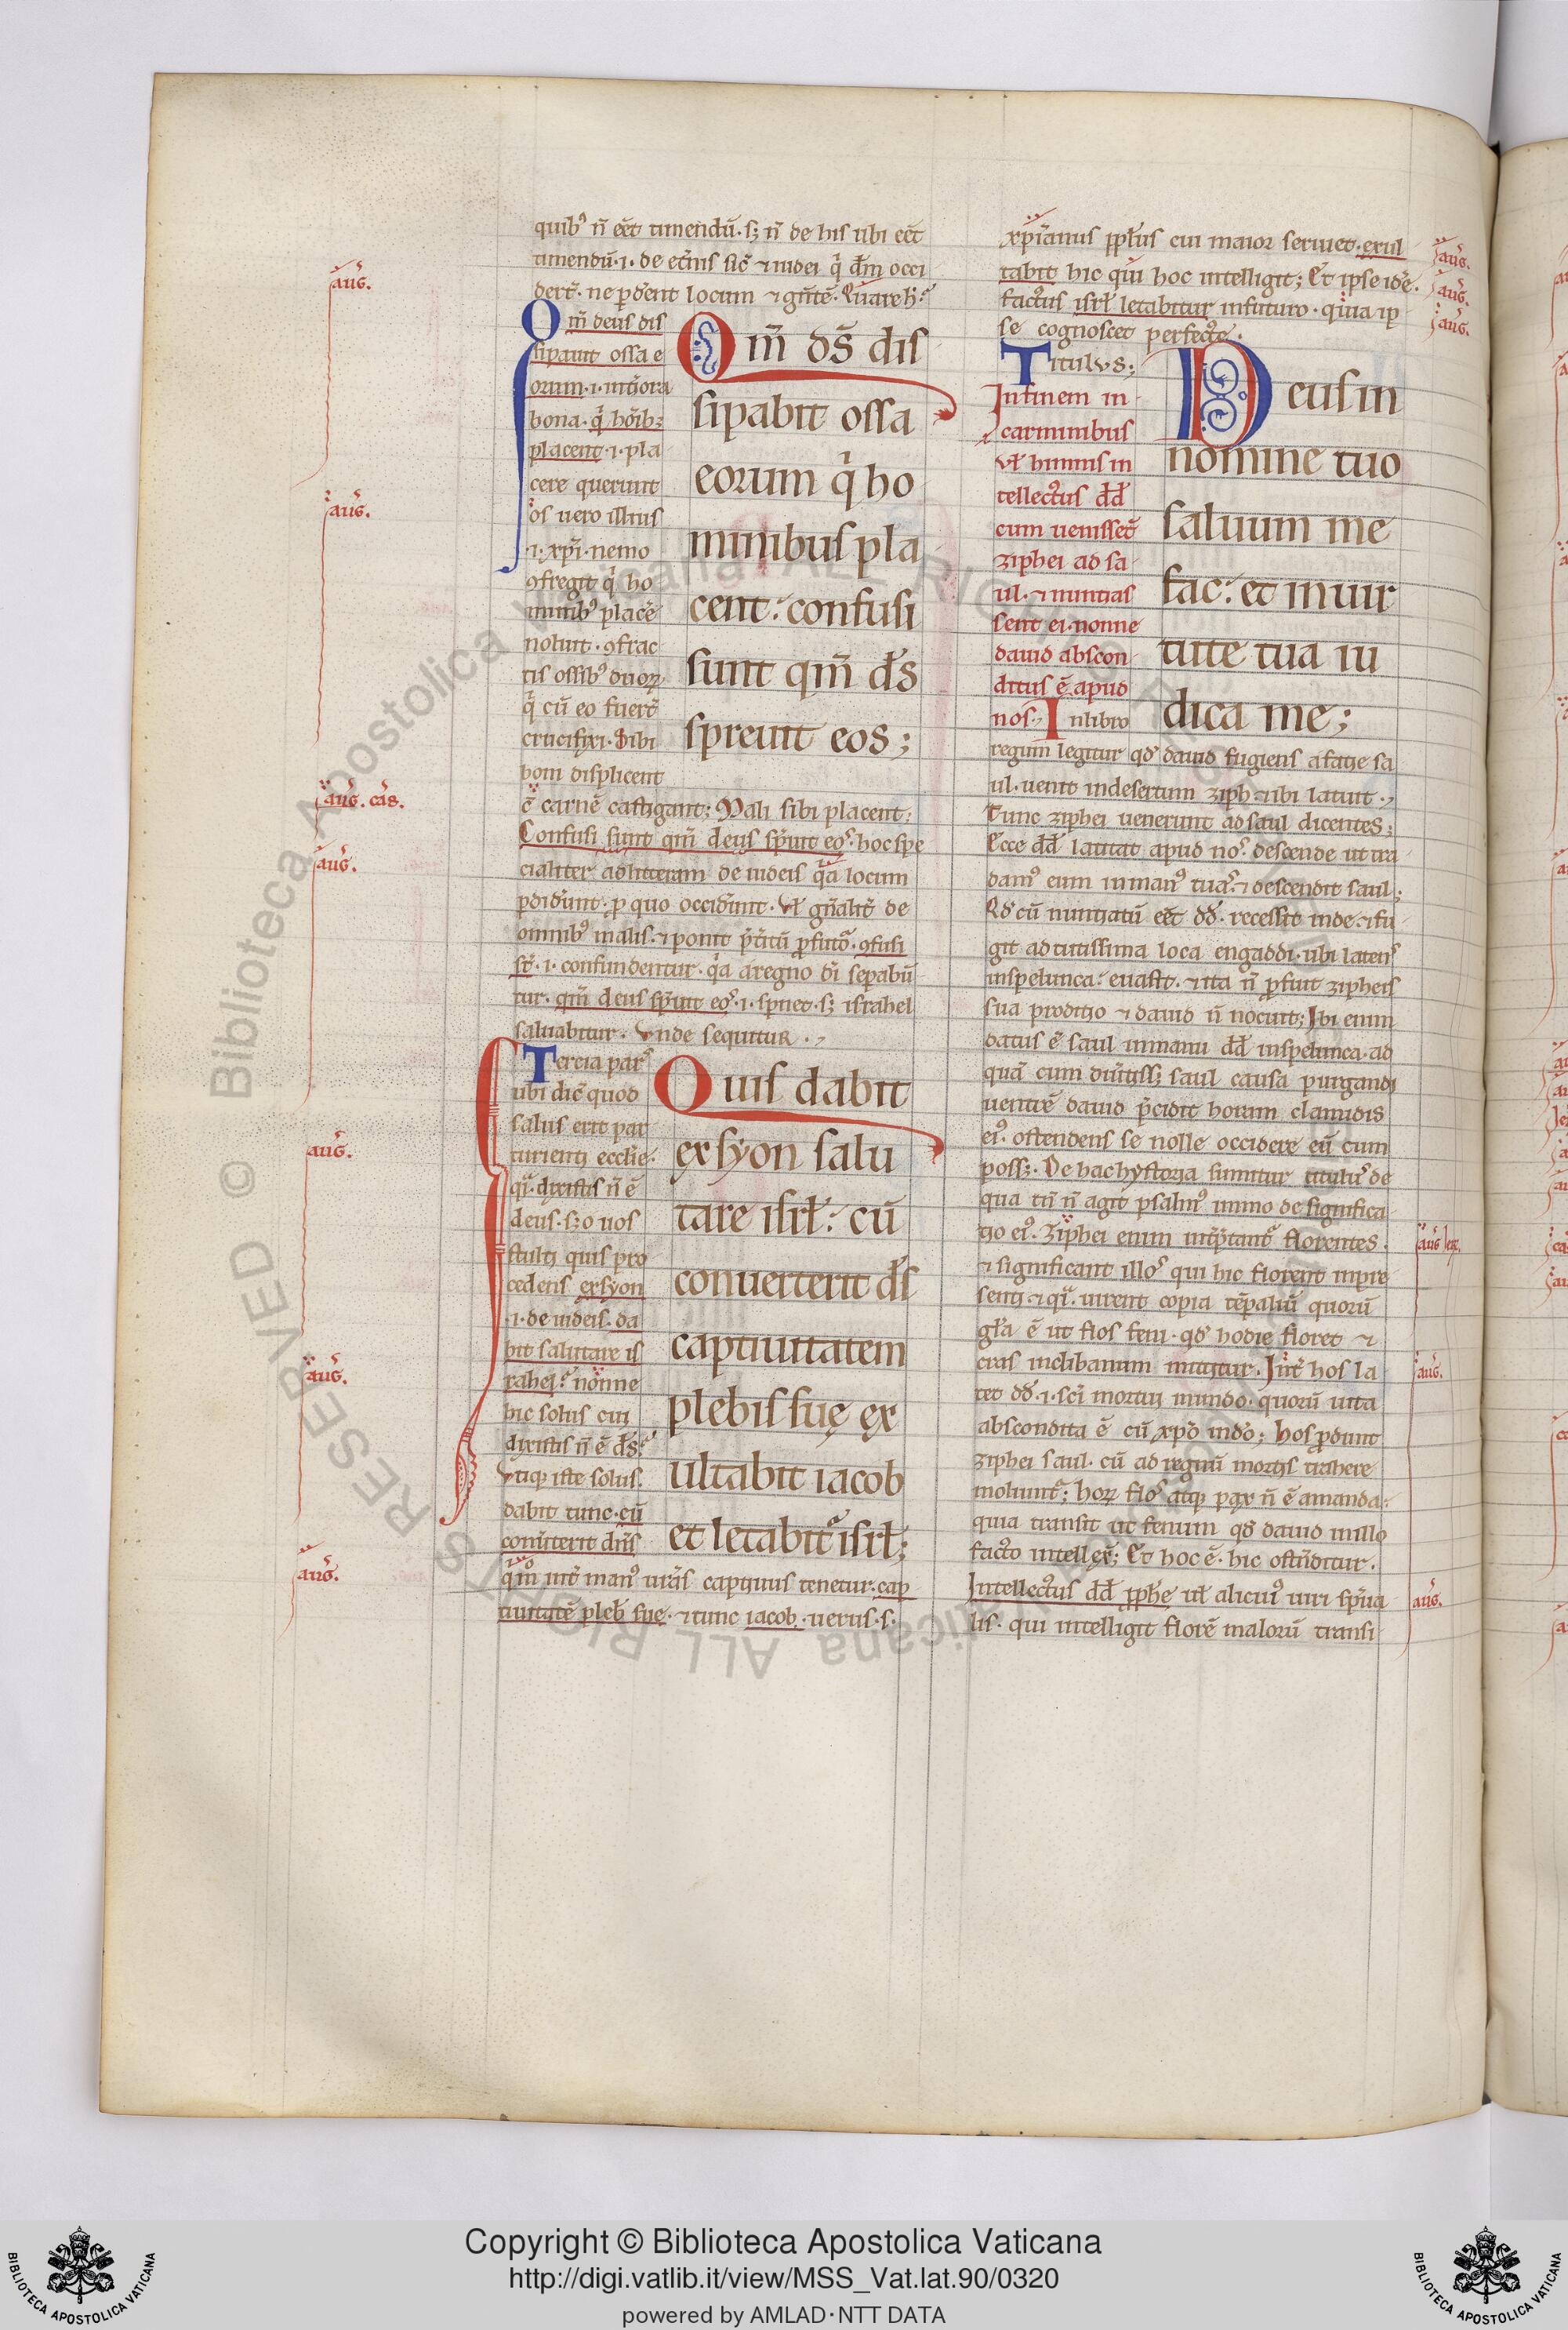 quib᷒ n̄ eēt timendū. sꝫ n̄ de his ubi eēt
timendū .i. de et̄nis sic̄ ⁊ iudei q̄ dn̄m occi
dert̄. ne ꝑdent locum ⁊ gn̄tē. Quare h̄.
Om̄ deus dis
sipauit ossa e
orum .i. int̄iora
bona. q̄ hoīb;
placent .i. pla
cere querunt
os uero illius
.i. xp̄i. nemo
ꝯfregit q̄ ho
minib᷒ placē
noluit. ꝯfrac
tis ossib᷒ duoꝝ
q̄ cū eo fuert̄
crucifixi. Sibi
boni displicent
Qm̄ ds̄ dis
sipabit ossa
eorum q̄ ho
minibus pla
cent: confusi
sunt qm̄ ds̄
spreuit eos;
c̄ carnē castigant; Mali sibi placent;
Confusi sunt qm̄ deus sp̄uit eos. hoc spe
cialiter ad litteram de iudeis q̄a locum
ꝑdider̄unt. ꝓ quo occider̄unt. Vl̄ gn̄alit̄ de
omnib᷒ malis. ⁊ ponit p̄t̄itū ꝓ futō. ꝯfusi
st̄ .i. confundentur. q̄a a regno dī sepabū
tur. qm̄ deus sp̄uit eos .i. sp̄net. sꝫ israhel
saluabitur. Vnde sequitur.
Tercia pars
ubi dic̄ quod
salus erit par
turienti eccl̄ie.
q̄. dixistis n̄ ē
deus. sꝫ o uos
stulti quis pro
cedens ex syon
.i. de iudeis. da
bit salutare is
rahel: nonne
hic solus cui
dixistis n̄ ē ds̄:
Vtiqꝫ iste solus.
dabit tunc. cū
conuerterit dn̄s
Quis dabit
ex syon salu
tare isrl̄: cū
conuerterit ds̄
captiuitatem
plebis suę ex
ultabit iacob
et letabit᷑ isrl̄;
qm̄ int̄ man᷒ ur̄as captiuus tenetur. cap
tiuitatē pleb̄ sue. ⁊ tunc iacob. uerus .s.
xp̄ianus ppl̄us cui maior seruiet. exul
tabit hic qui hoc intelligit; Et ipse idē.
factus isrl̄ letabitur in futuro. quia ip
se cognoscet perfecte.
Titulus;
In finem in
carminibus
vl̄ himnis in
tellectus dd̄
cum uenisset̄
ziphei ad sa
ul. ⁊ nuntias
sent ei. nonne
dauid abscon
ditus ē apud
nos. In libro
Deus in
nomine tuo
saluum me
fac: et in uir
tute tua iu
dica me;
regum legitur qd̄ dauid fugiens a facie sa
ul. uenit in desertum ziph ⁊ ibi latuit.
Tunc ziphei uenerunt ad saul dicentes;
Ecce dd̄ latitat apud nos. descende ut tra
dam᷒ eum in man᷒ tuas. ⁊ descendit saul;
Qd̄ cū nuntiatū eēt dd̄. recessit inde. ⁊ fu
git ad tutissima loca engaddi. ubi latens
in spelunca: euasit. ⁊ ita n̄ ꝓfuit zipheis
sua proditio ⁊ dauid n̄ nocuit; Ibi enim
datus ē saul in manu dd̄ in spelunca. ad
quā cum diu̅tiss; saul causa purgandi
uentrē dauid p̄cidit horam clamidis
ei᷒. ostendens se nolle occidere eū cum
poss;. De hac hystoria sumitur titulus de
qua tn̄ n̄ agit psalm᷒ immo de significa
tio ei᷒. Ziphei enim int̄p̄tant᷑ florentes.
⁊ significant illos qui hic florent in pre
senti ⁊ q̄. uirent copia tēpaliū quorū
gl̄a ē ut flos feni. qd̄ hodie floret ⁊
cras in clibanum mittitur. Int̄ hos la
tet dd̄ .i. sc̄i mortui mundo. quorū uita
abscondita ē cū xp̄o in dō; hos ꝓdunt
ziphei saul. cū ad regnū mortis trahere
moliunt᷑; hoꝝ flos atqꝫ pax n̄ ē amanda:
quia transit ut fenum qd̄ dauid in illo
facto intellex̄; Et hoc ē. hic oste̅ditur.
Intellectus dd̄ ꝓph̄e ul̄ alicui᷒ uiri sp̄ua
lis. qui intelligit florē malorū transi
aug̅.
aug̅.
aug̅. cās.
aug̅.
aug̅.
aug̅.
aug̅.
aug̅.
aug̅.
aug̅.
aug̅
aug̅.
aug̅.
© Biblioteca Apostolica Vaticana ALL RIGHTS RESERVED
Copyright © Biblioteca Apostolica Vaticana
http://digi.vatlib.it/view/MSS_Vat.lat.90/0320
powered by AMLAD·NTT DATA
BIBLIOTECA APOSTOLICA VATICANA
BIBLIOTECA APOSTOLICA VATICANA